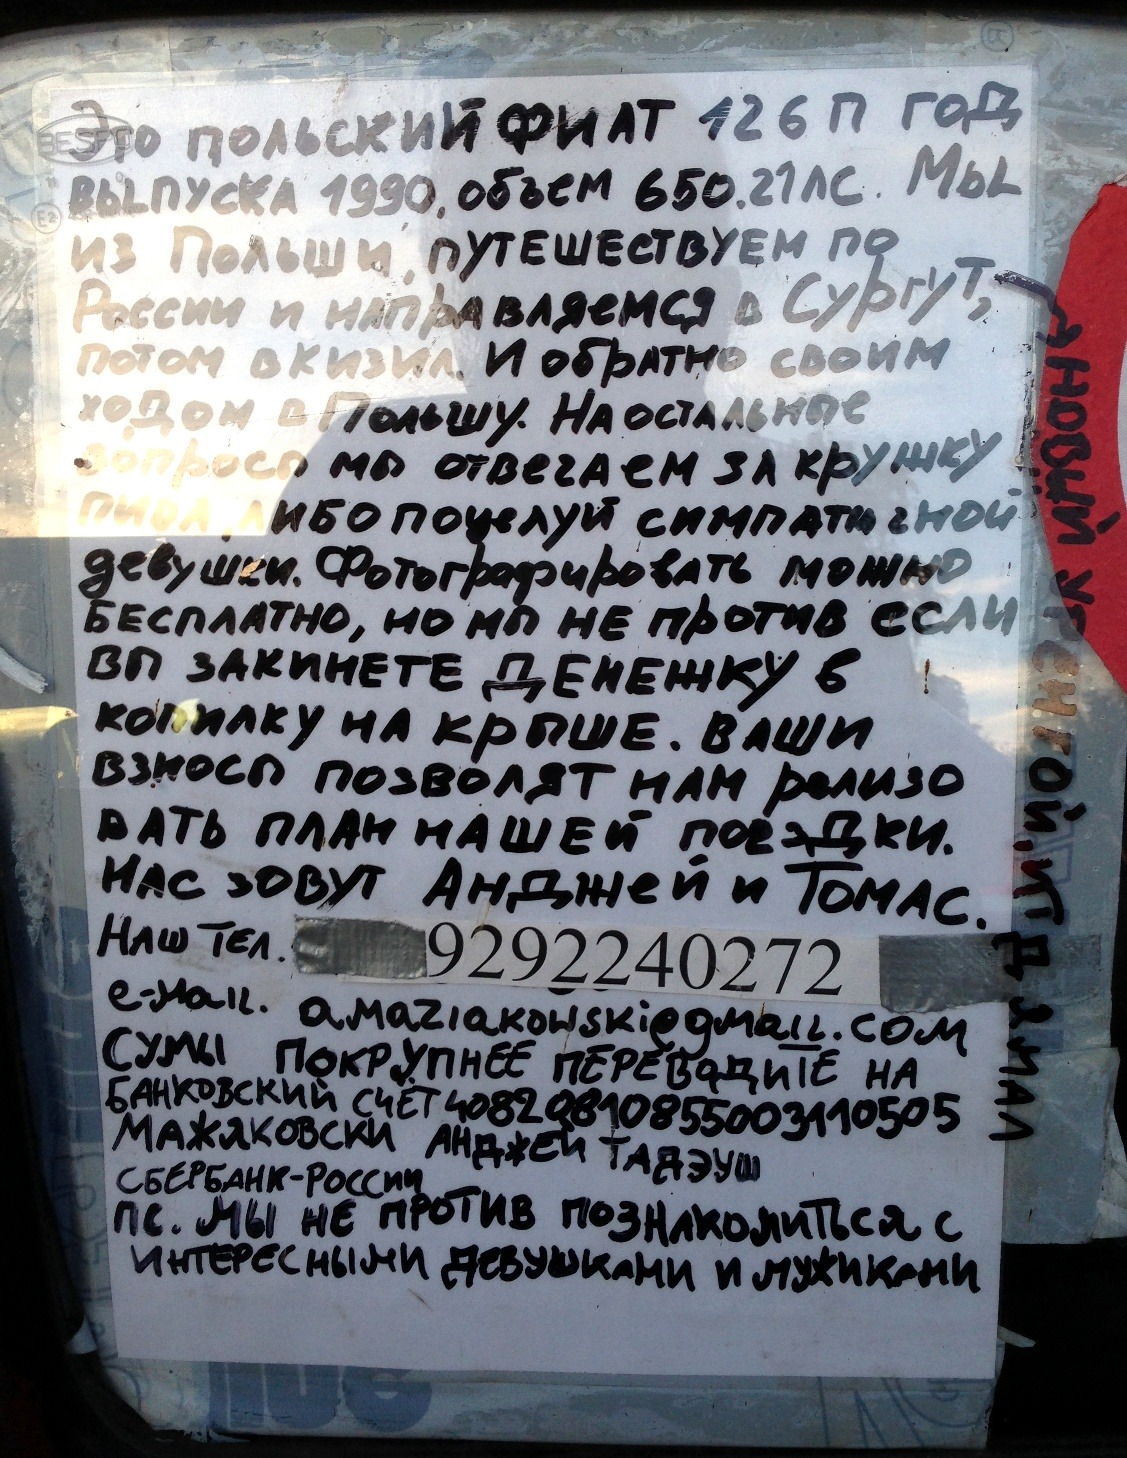 Это польский фиат 126п год
выпуска 1990, объем 650.21лс. Мы
из Польши, путешествуем по
России и направляемся в Сургут,
потом в Кизил. И обратно своим
ходом в Польшу. На остальные
вопросы мы отвегаем за кружку
пива, либо поцелуй симпатигной
девушки. Фотографировать можно
бесплатно, но мы не против если
вы закинете денежку в
копилку на крыше. Ваши
взносы позволят нам релизо
вать план нашей поездки.
Нас зовут Анджей и Томас.
Наш тел. 9292240272
e-mail. amaziakowski@gmail.com
Сумы покрупнее перевадите на
банковский счёт 40820810855003110505
Мажяковски Анджей Тадэуш
Сбербанк-России
пс. Мы не против познакомиться с
интересными девушками и мужиками
Ямал